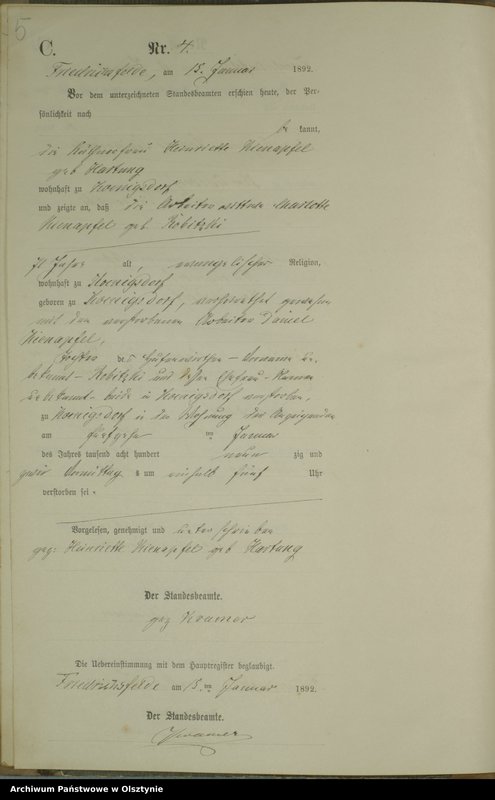 5
C.
Nr. 4.
Friedrichsfelde, am 15. Januar 1892.
Vor dem unterzeichneten Standesbeamten erschien heute, der Per-
sönlichkeit nach
be kannt,
die Käthnerfrau Henriette Nienapfel
geb Hartung
wohnhaft zu Koenigsdorf
und zeigte an, daß die Arbeiterwittwe Charlotte
Nienapfel geb. Kobitzki
71 Jahre alt, evangelischer Religion,
wohnhaft zu Koenigsdorf
geboren zu Koenigsdorf, verheirathet gewesen
mit dem verstorbenen Arbeiter Daniel
Nienapfel,
Tochter des Hufenwirthen - Vorname un-
bekannt - Kobitzki und dessen Ehefrau - Name
unbekannt - beide in Koenigsdorf verstorben,
zu Koenigsdorf in der Wohnung der Anzeigenden
am ten Januar
des Jahres tausend acht hundert neun zig und
zwei Vormittag s um einhalb fünf Uhr
verstorben sei.
Vorgelesen, genehmigt und unterschrieben
gez: Henriette Nienapfel geb Hartung
Der Standesbeamte.
gez Kramer
Die Uebereinstimmung mit dem Hauptregister beglaubigt.
Friedrichsfelde am 15. ten Januar 1892.
Der Standesbeamte.
Kramer
Archiwum Państwowe w Olsztynie